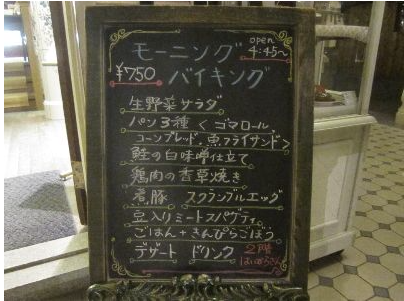 モーニング
open
4:45～
¥750
バイキング
生野菜サラダ
パン3種<ゴマロール,
コーンブレッド,魚フライサンド>
鮭の白味噌仕立て
鶏肉の香草焼き
スクランブルエッグ
豆入りミートスパゲティ
ごはん+きんぴらごぼう
デザート ドリンク
2階